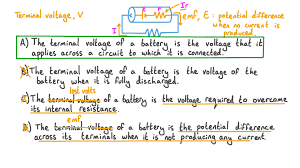 Terminal voltage, V
I
E
r
I r
emf, ε : potential difference
when no current is
produced.
A) The terminal voltage of a battery is the voltage that it
applies across a circuit to which it is connected.
B) The terminal voltage of a battery is the voltage of the
battery when it is fully discharged.
lost volts
C) The terminal voltage of a battery is the voltage required to overcome
its internal resistance.
emf
D) The terminal voltage of a battery is the potential difference
across its terminals when it is not producing any current